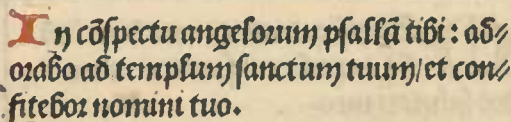 In cõspectu angelorum psallã tibi : ad⸗
orabo ad templum sanctum tuum/ et con⸗
fitebor nomini tuo.